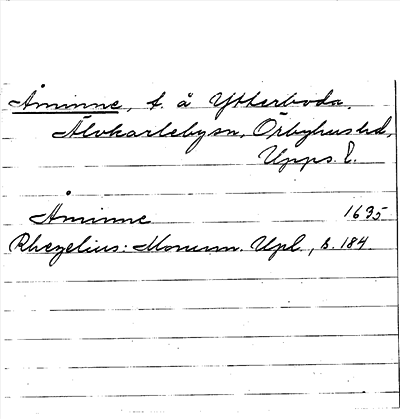 Åminne, t. å Ytterboda,
Älvkarlebysn, Örbyhushd,
Upps. l.
Åminne 1635
Rhezelius: Monum. Upl., s. 184.